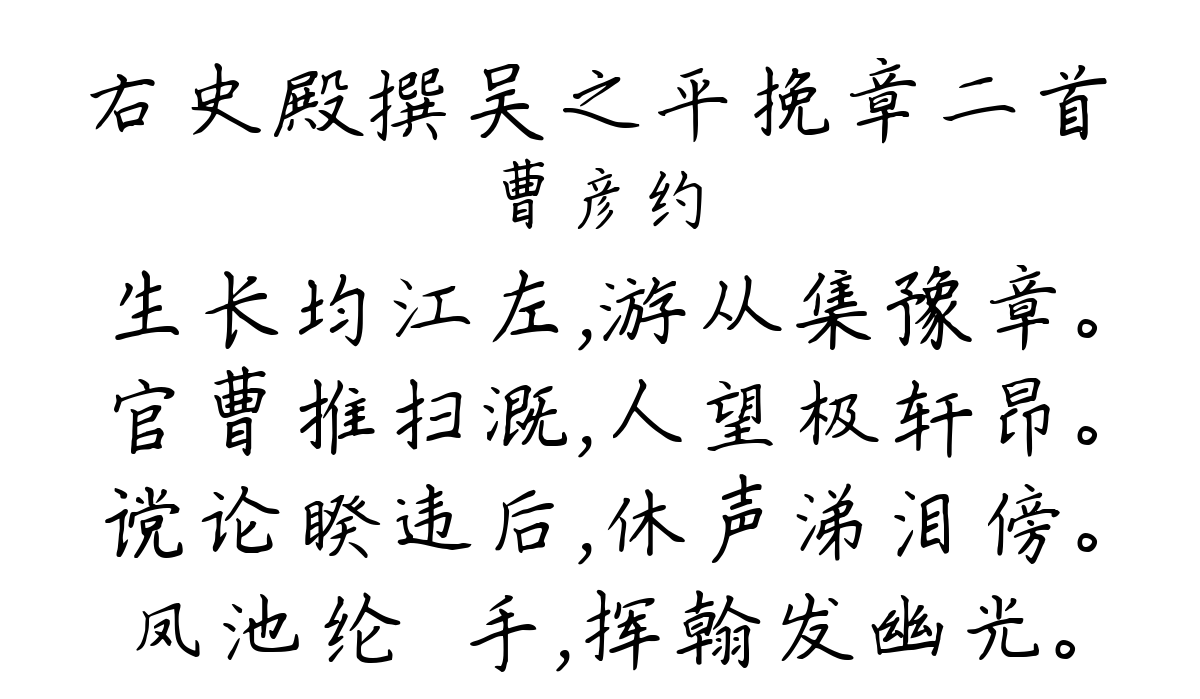 右史殿撰吴之平挽章二首
曹彦约
生长均江左,游从集豫章。
官曹推扫溉,人望极轩昂。
谠论睽违后,休声涕泪傍。
凤池纶 手,挥翰发幽光。